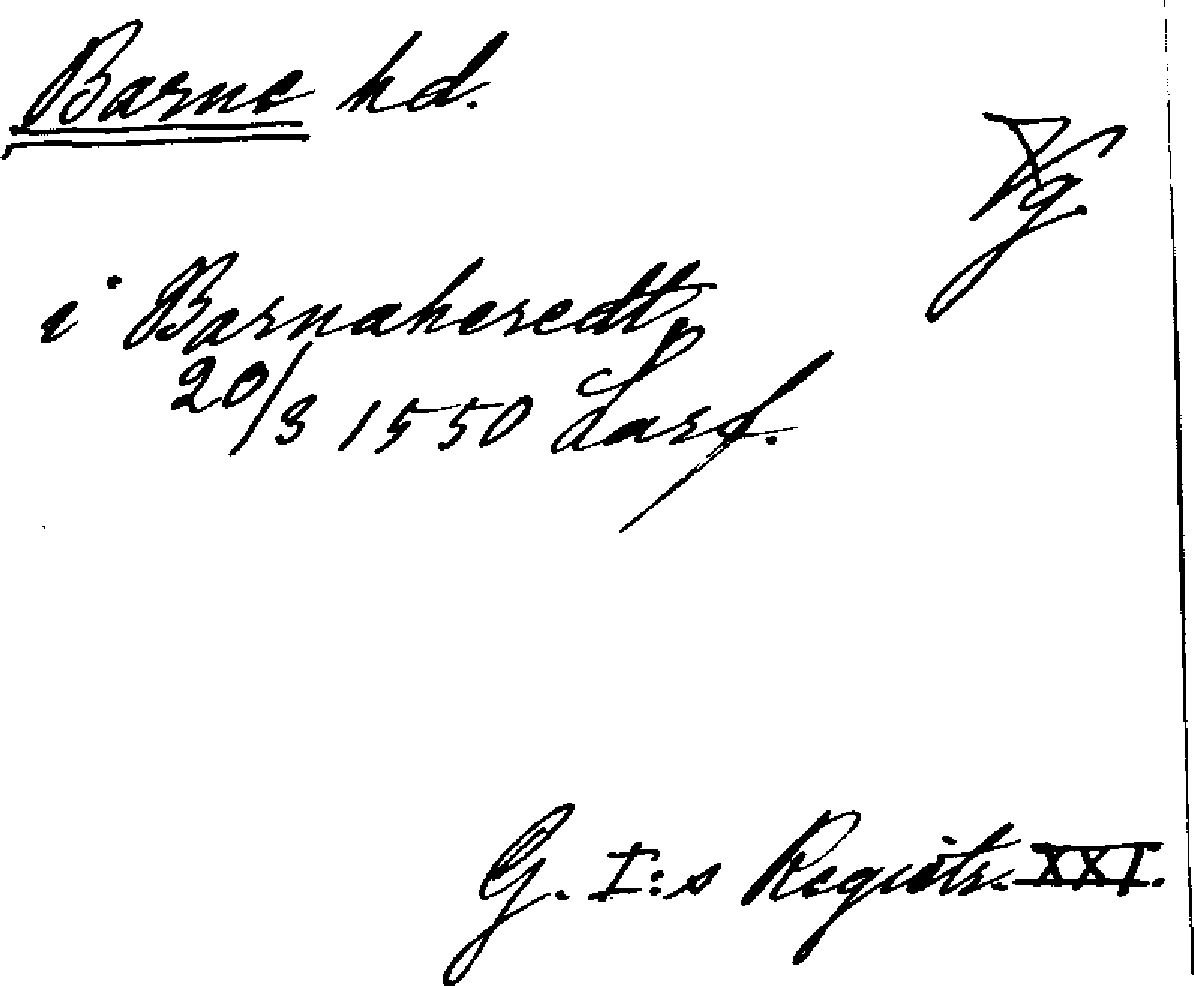 Barne hd.
Vg.
i Barnaheredt
20/3 1550 Larf.
G. I:s Registr. XXI.